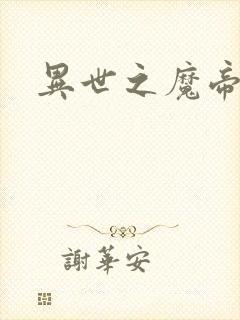 異世之魔帝
謝華安